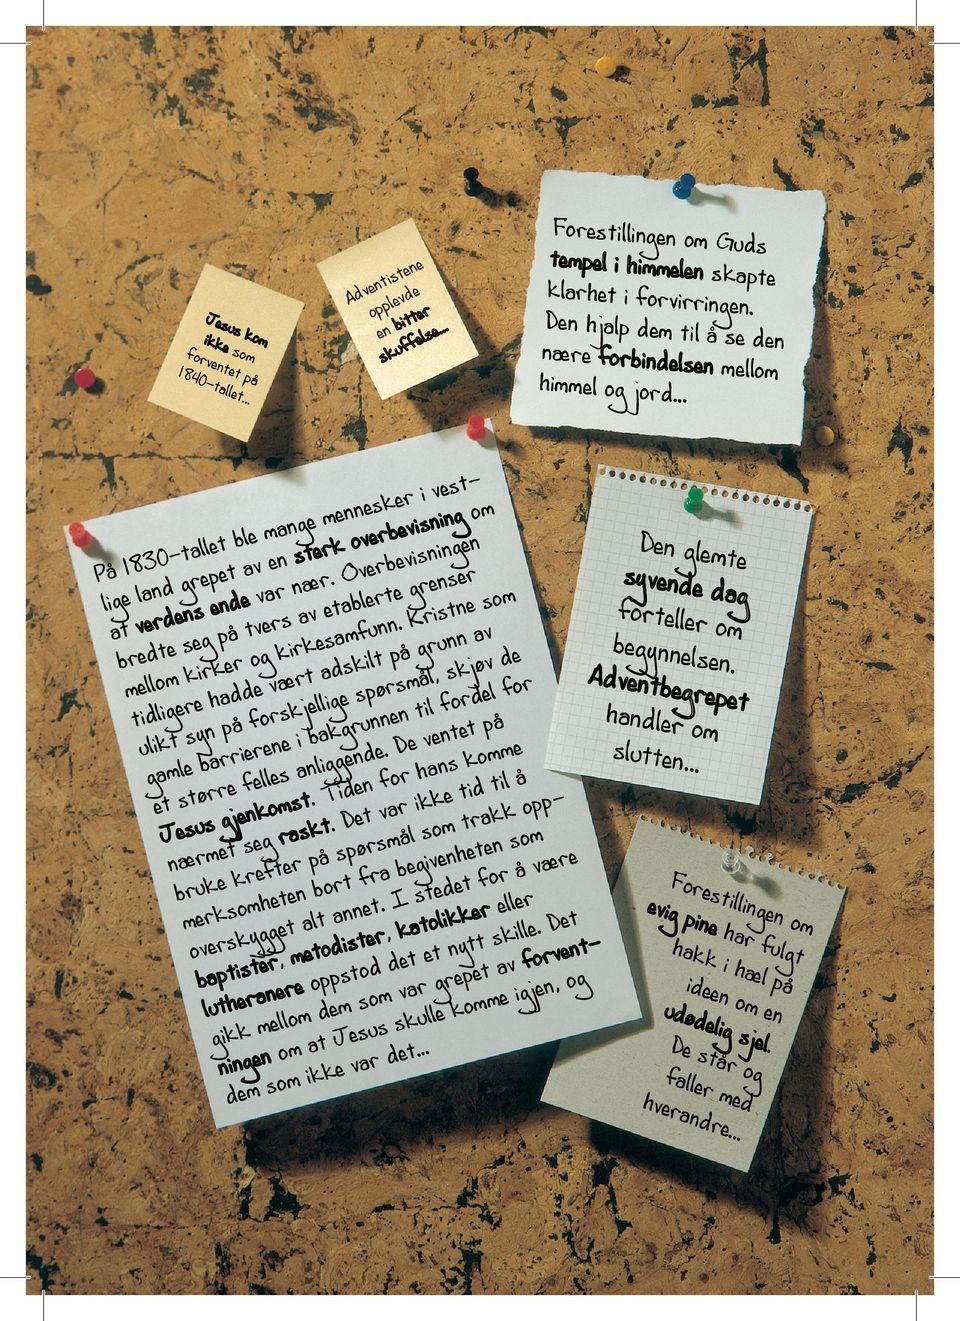 Jesus kom
ikke som
forventet på
1840-tallet...
Adventistene
opplevde
en bitter
skuffelse...
Forestillingen om Guds
tempel i himmelen skapte
klarhet i forvirringen.
Den hjalp dem til å se den
nære forbindelsen mellom
himmel og jord...
På 1830-tallet ble mange mennesker i vest-
lige land grepet av en sterk overbevisning om
at verdens ende var nær. Overbevisningen
bredte seg på tvers av etablerte grenser
mellom kirker og kirkesamfunn. Kristne som
tidligere hadde vært adskilt på grunn av
ulikt syn på forskjellige spørsmål, skjøv de
gamle barrierene i bakgrunnen til fordel for
et større felles anliggende. De ventet på
Jesus gjenkomst. Tiden for hans komme
nærmet seg raskt. Det var ikke tid til å
bruke krefter på spørsmål som trakk opp-
merksomheten bort fra begivenheten som
overskygget alt annet. I stedet for å være
baptister, metodister, katolikker eller
lutheranere oppstod det et nytt skille. Det
gikk mellom dem som var grepet av forvent-
ningen om at Jesus skulle komme igjen, og
dem som ikke var det...
Den glemte
syvende dag
forteller om
begynnelsen.
Adventbegrepet
handler om
slutten...
Forestillingen om
evig pine har fulgt
hakk i hæl på
ideen om en
udødelig sjel.
De står og
faller med
hverandre...